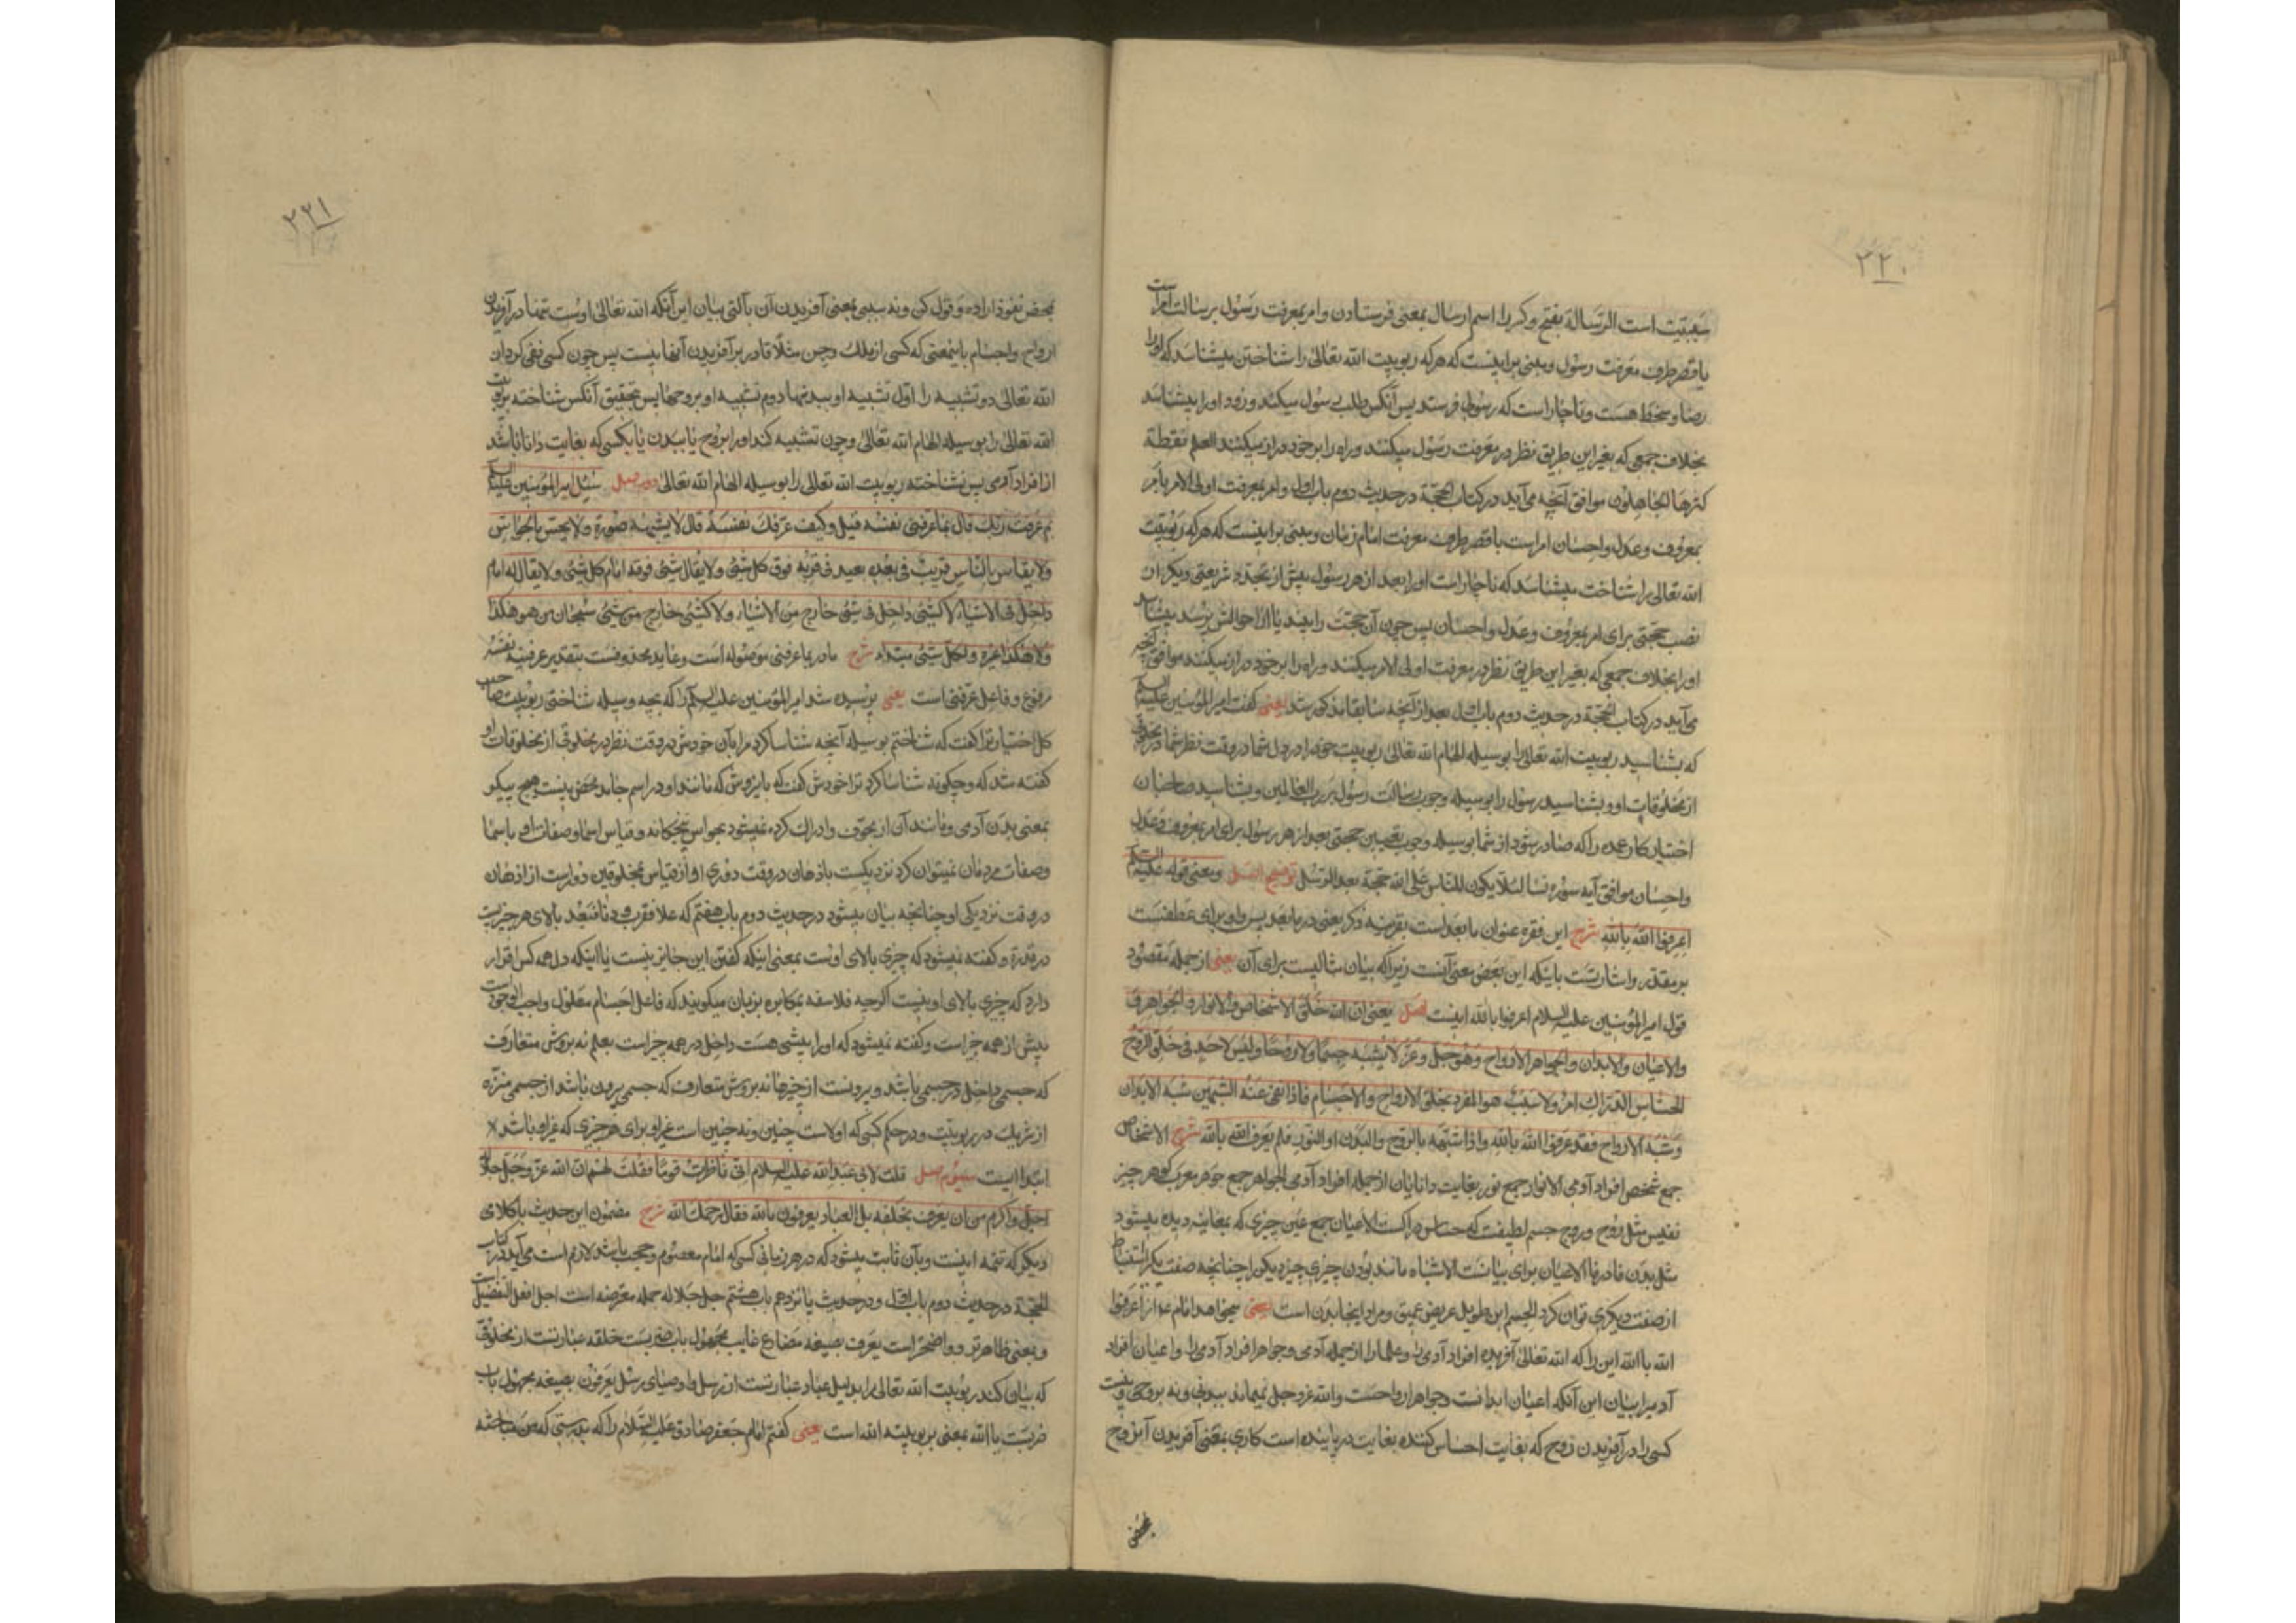 ۲۲۰
سببیت است الرسالة بفتح و کسر را اسم ارسال بمعنی فرستادن و امر بمعرفت رسول برسالت امر است
یا قصر طرف معرفت رسول و مبنی بر اینست که هر که ربوبیت الله تعالی را شناختن میشناسد که او را
رضا و سخط هست و ناچار است که رسولی فرستد پس آنکس طلب رسول میکند و زود او را میشناسد
بخلاف جمعی که بغیر این طریق نظر در معرفت رسول میکنند و راه را بر خود دراز میکنند العلم نقطة
کثرها الجاهلون موافق آنچه می‌آید در کتاب الحجة در حدیث دوم باب اول و امر بمعرفت اولی الامر بامر
بمعروف و عدل و احسان امر است با قصر طرف معرفت امام زمان و مبنی بر اینست که هر که ربوبیت
الله تعالی را شناخت میشناسد که ناچار است او را بعد از هر رسول پیش از تجدد شریعتی دیگر از
نصب حجتی برای امر بمعروف و عدل و احسان پس چون آن حجت را بیند یا از احوالش پرسد میشناسد
او را بخلاف جمعی که بغیر این طریق نظر در معرفت اولی الامر میکنند و راه را بر خود دراز میکنند موافق آنچه
می‌آید در کتاب الحجة در حدیث دوم باب اول بعد از آنچه سابقا مذکور شد یعنی گفت امیر المؤمنین علیه السلم
که بشناسید ربوبیت الله تعالی را بوسیله الهام الله تعالی ربوبیت خود را در دل شما در وقت نظر شما در مخلوقی
از مخلوقات او و بشناسید رسول را بوسیله وجوب رسالت رسول بر رب العالمین و بشناسید صاحبان
اختیار کار عمده را که صادر شود از شما بوسیله وجوب تعیین حجتی بعد از هر رسول برای امر بمعروف و عدل
و احسان موافق آیه سوره نسا لئلا یکون للناس علی الله حجة بعد الرسل توضیح اصل و معنی قوله علیه السلم
اعرفوا الله بالله شرح این فقره عنوان ما بعد است بقرینه ذکر یعنی در ما بعد پس واو برای عطفست
بر مقدر و اشارتست باینکه این بعض معنی آنست زیرا که بیان مثالیست برای آن یعنی از جمله مقصود
قول امیر المؤمنین علیه السلام اعرفوا بالله اینست اصل یعنی ان الله خلق الاشخاص و الانوار و الجواهر ق
والاعیان والابدان والجواهر الارواح وهو جل وعز لا یشبه جسما ولا روحا ولیس لاحد فی خلق الروح
الحساس الدراک امر ولا سبب هو المفرد بخلق الارواح والاجسام فاذا نفی عنه الشبهین شبه الابدان
وشبه الارواح فقد عرف الله بالله واذا شبهه بالروح والبدن او النور فلم یعرف الله بالله شرح الاشخاص
جمع شخص افراد آدمی الانوار جمع نور بغایت دانایان از جمله افراد آدمی الجواهر جمع جوهر معرب گوهر چیز
نفیس مثل روح و روح جسم لطیفست که حساس دراکست الاعیان جمع عین چیزی که بمعاینه دیده میشود
مثل بدن فا در فالاعیان برای بیانست الاشباه مانند بودن چیزی چیز دیگر را چنانچه صفت یکی را استنباط
از صفت دیگری توان کرد الجسم این طویل عریض عمیق و مراد اینجا بدن است یعنی میخواهد امام ع از اعرفوا
الله بالله این را که الله تعالی آفریده افراد آدمی را و علما را از جمله آدمی و جواهر افراد آدمی را و اعیان افراد
آدمیرا بیان این آنکه اعیان ابدانست و جواهر ارواحست و الله عز و جل نمیماند ببدنی و نه بروحی و نیست
کسی را در آفریدن روح که بغایت احساس کننده بغایت دریابنده است کاری بمعنی آفریدن آن روح
بمحض
۲۲۱
بمحض نفوذ اراده و قول کن و نه سببی بمعنی آفریدن آن بآلتی بیان این آنکه الله تعالی اوست تنها در آفریدن
ارواح و اجسام باینمعنی که کسی از ملک و جن مثلا قادر بر آفریدن آنها نیست پس چون کسی نفی کرد از
الله تعالی دو تشبیه را اول تشبیه او ببدنها دوم تشبیه او بروحها پس بتحقیق آنکس شناخته ربوبیت
الله تعالی را بوسیله الهام الله تعالی و چون تشبیه کند او را بروح یا ببدن یا بکسی که بغایت دانا باشد
از افراد آدمی پس نشناخته ربوبیت الله تعالی را بوسیله الهام الله تعالی دوم اصل سئل امیر المؤمنین علیه السلم
بم عرفت ربک قال بما عرفنی نفسه قیل وکیف عرفک نفسه قال لا یشبهه صورة ولا یحس بالحواس
ولا یقاس بالناس قریب فی بعده بعید فی قربه فوق کل شئ ولا یقال شئ فوقه امام کل شئ ولا یقال له امام
داخل فی الاشیاء لا کشئ داخل فی شئ خارج من الاشیاء ولا کشئ خارج من شئ سبحان من هو هکذا
ولا هکذا غیره ولکل شئ مبتداء شرح ما در بما عرفنی موصوله است و عاید محذوفست بتقدیر عرفنیه نفسه
مرفوع و فاعل عرفنی است یعنی پرسیده شد امیر المؤمنین علیه السلم را که بچه وسیله شناختی ربوبیت صاحب
کل اختیار ترا گفت که شناختم بوسیله آنچه شناسا کرد مرا بآن خودش در وقت نظر در مخلوقی از مخلوقات او
گفته شد که و چگونه شناسا کرد ترا خودش گفت که باین روش که مانند او در اسم جامد محض نیست هیچ پیکر
بمعنی بدن آدمی و مانند آن از مجوف و ادراک کرده نمیشود بحواس پنجگانه و قیاس اسما و صفات او باسما
و صفات مردمان نمیتوان کرد نزدیکست باذهان در وقت دوری او از قیاس بمخلوقین دور است از اذهان
در وقت نزدیکی او چنانچه بیان میشود در حدیث دوم باب هفتم که علا فقرب و دنا فبعد بالای هر چیز است
در قدرة و گفته نمیشود که چیزی بالای اوست بمعنی اینکه گفتن این جایز نیست یا اینکه دل همه کس اقرار
دارد که چیزی بالای او نیست اگرچه فلاسفه بمکابره بزبان میگویند که فاعل اجسام معلول واجب الوجود است
پیش از همه چیز است و گفته نمیشود که او را پیشی هست داخل در همه چیز است بعلم نه بروش متعارف
که جسمی داخل در جسمی باشد و بیرونست از چیزها نه بروش متعارف که جسمی بیرون باشد از جسمی منزه
از شریک در ربوبیت و در حکم کسی که او است چنین و نه چنین است غیر او برای هر چیزی که غیر او باشد
ابتداییست سیوم اصل قلت لابی عبد الله علیه السلام انی ناظرت قوما فقلت لهم ان الله عز وجل جلاله
اجل واکرم من ان یعرف بخلقه بل العباد یعرفون بالله فقال رحمک الله شرح مضمون این حدیث با کلامی
دیگر که تتمه اینست و بآن ثابت میشود که در هر زمانی کسی که امام معصوم و حجت باشد لازم است می‌آید در کتاب
الحجة در حدیث دوم باب اول و در حدیث پانزدهم باب هشتم جل جلاله جمله معترضه است اجل افعل التفضیل است
و بمعنی ظاهرتر و واضحتر است یعرف بصیغه مضارع غایب مجهول باب ضربست خلقه عبارتست از مخلوقی
که بیان کند ربوبیت الله تعالی را بدلیل عباد عبارتست از رسل و اوصیای رسل یعرفون بصیغه مجهول باب
ضربست بالله بمعنی بربوبیت الله است یعنی گفتم امام جعفر صادق علیه السلام را که بدرستی که من مباحثه